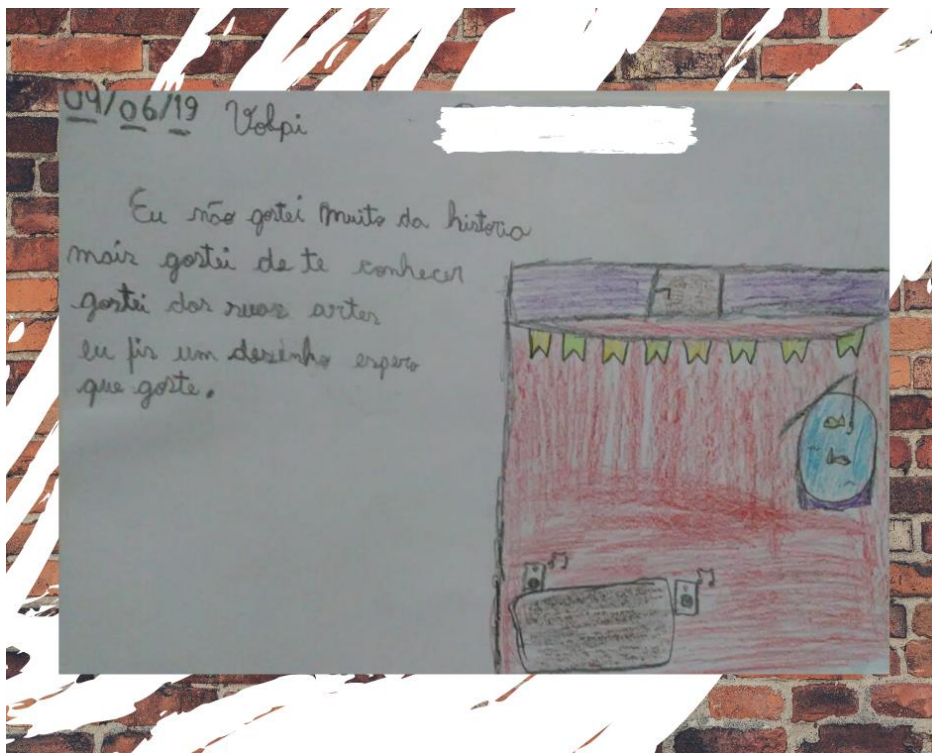 04/06/19 Volpi
Eu não gostei muito da historia
mais gostei de te conhecer
gostei das suas artes
eu fis um desenho espero
que goste.